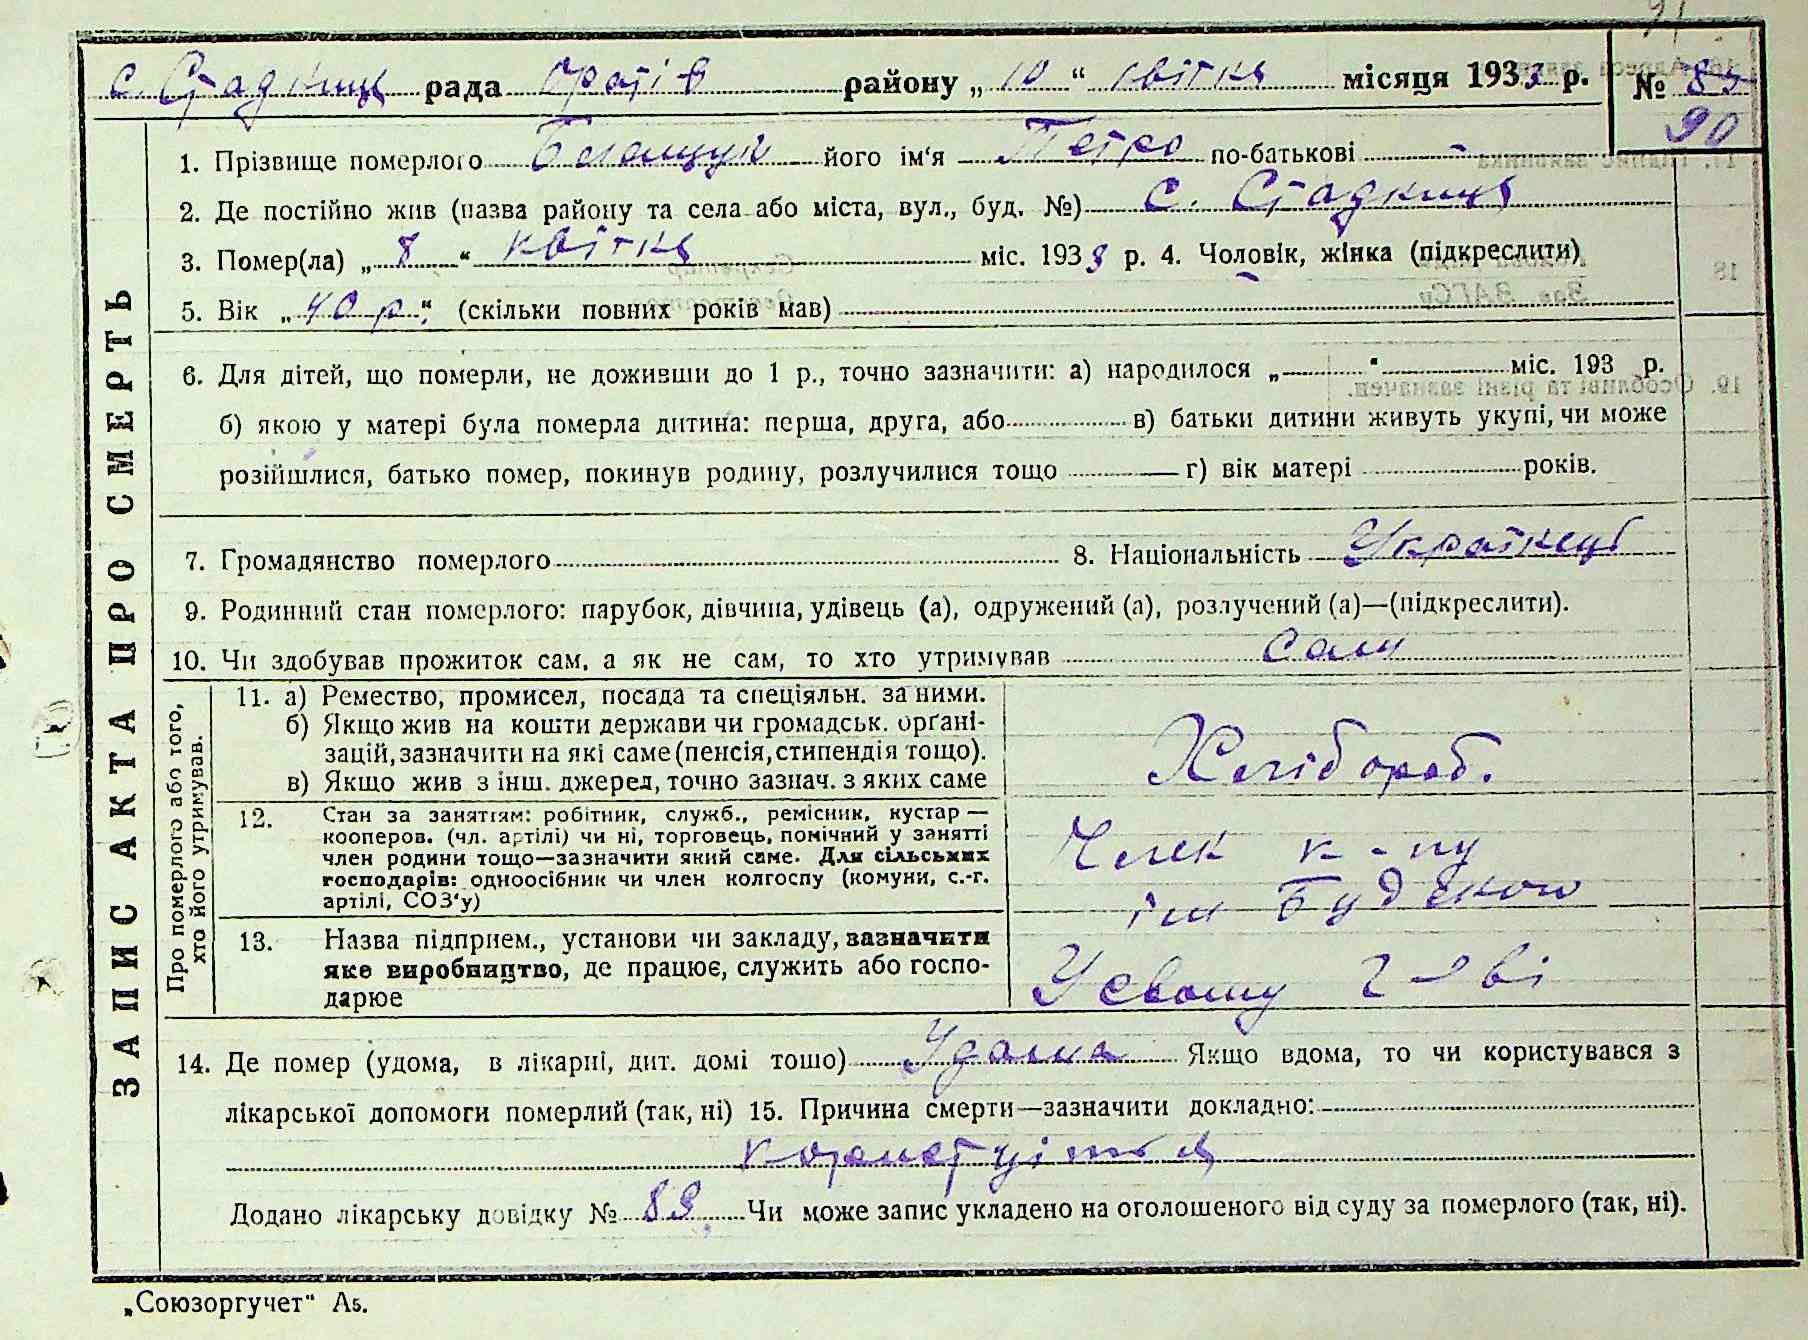 с. Стадниця рада Оратів району „10“ квітня місяця 1933 р. № 89
90
1. Прізвище померлого його ім‘я Петро по-батькові -
2. Де постійно жив (назва району та села або міста, вул., буд. №) с. Стадниця
3. Помер(ла) „8“ квітня міс. 1933 р. 4. Чоловік, жінка (підкреслити)
5. Вік „40 р.“ (скільки повних років мав)
6. Для дітей, що померли, не доживши до 1 р., точно зазначити: а) народилося „ “ міс. 193 р.
б) якою у матері була померла дитина: перша, друга, або в) батьки дитини живуть укупі, чи може
розійшлися, батько помер, покинув родину, розлучилися тощо г) вік матері років.
7. Громадянство померлого 8. Національність Українець
9. Родинний стан померлого: парубок, дівчина, удівець (а), одружений (а), розлучений (а)—(підкреслити).
10. Чи здобував прожиток сам, а як не сам, то хто утримував сам
ЗАПИС АКТА ПРО СМЕРТЬ
Про померлого або того,
хто його утримував.
11. а) Ремество, промисел, посада та спеціяльн. за ними.
б) Якщо жив на кошти держави чи громадськ. орґані-
зацій, зазначити на які саме (пенсія, стипендія тощо).
в) Якщо жив з інш. джерел, точно зазнач. з яких саме
Хлібороб.
12. Стан за заняттям: робітник, служб., ремісник, кустар —
кооперов. (чл. артілі) чи ні, торговець, помічний у занятті
член родини тощо—зазначити який саме. Для сільських
господарів: одноосібник чи член колгоспу (комуни, с.-г.
артілі, СОЗ‘у)
Член к-пу
ім Будьоного
13. Назва підприєм., установи чи закладу, зазначити
яке виробництво, де працює, служить або госпо-
дарює
У свому г-ві
14. Де помер (удома, в лікарні, дит. домі тощо) Удома Якщо вдома, то чи користувався з
лікарської допомоги померлий (так, ні) 15. Причина смерти—зазначити докладно:
Додано лікарську довідку № 89. Чи може запис укладено на оголошеного від суду за померлого (так, ні).
„Союзоргучет“ А5.